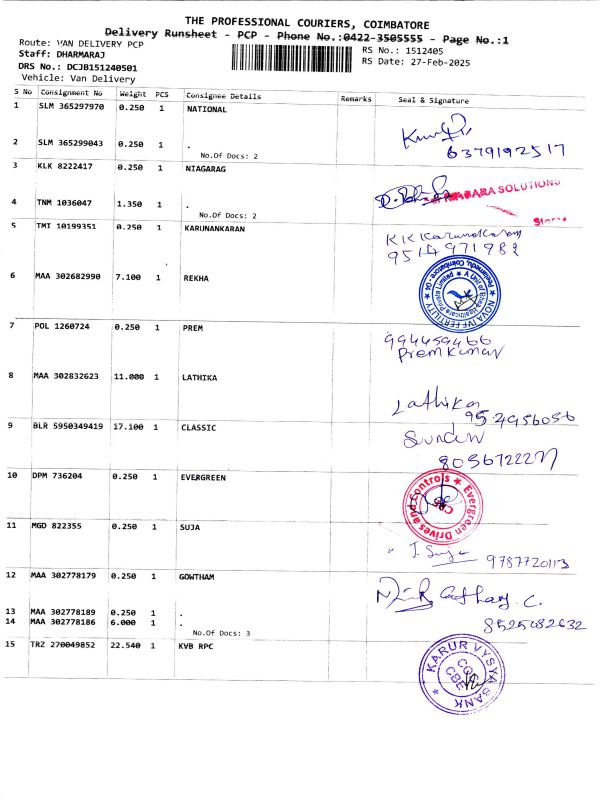 THE PROFESSIONAL COURIERS, COIMBATORE
Delivery Runsheet - PCP - Phone No.:0422-3505555 - Page No.:1
Route: VAN DELIVERY PCP
RS No.: 1512405
Staff: DHARMARAJ
RS Date: 27-Feb-2025
DRS No.: DCJB151240501
Vehicle: Van Delivery
S No Consignment No Weight PCS Consignee Details Remarks Seal & Signature
1 SLM 365297970 0.250 1 NATIONAL
2 SLM 365299043 0.250 1 .
6379192517
No.Of Docs: 2
3 KLK 8222417 0.250 1 NIAGARAG
SOLUTIONS
4 TNM 1036047 1.350 1 .
No.Of Docs: 2
5 TMT 10199351 0.250 1 KARUNANKARAN
9514971982
6 MAA 302682990 7.100 1 REKHA
NOVA IVF FERTILITY
7 POL 1260724 0.250 1 PREM
994459466
Premkumar
8 MAA 302832623 11.000 1 LATHIKA
Lathika
9524956056
9 BLR 5950349419 17.100 1 CLASSIC
8056722277
10 DPM 736204 0.250 1 EVERGREEN
Evergreen Drives and Controls
CBE
11 MGD 822355 0.250 1 SUJA
9787720113
12 MAA 302778179 0.250 1 GOWTHAM
13 MAA 302778189 0.250 1 .
14 MAA 302778186 6.000 1 .
8525082632
No.Of Docs: 3
15 TRZ 270049852 22.540 1 KVB RPC
KARUR VYSYA BANK
CBE